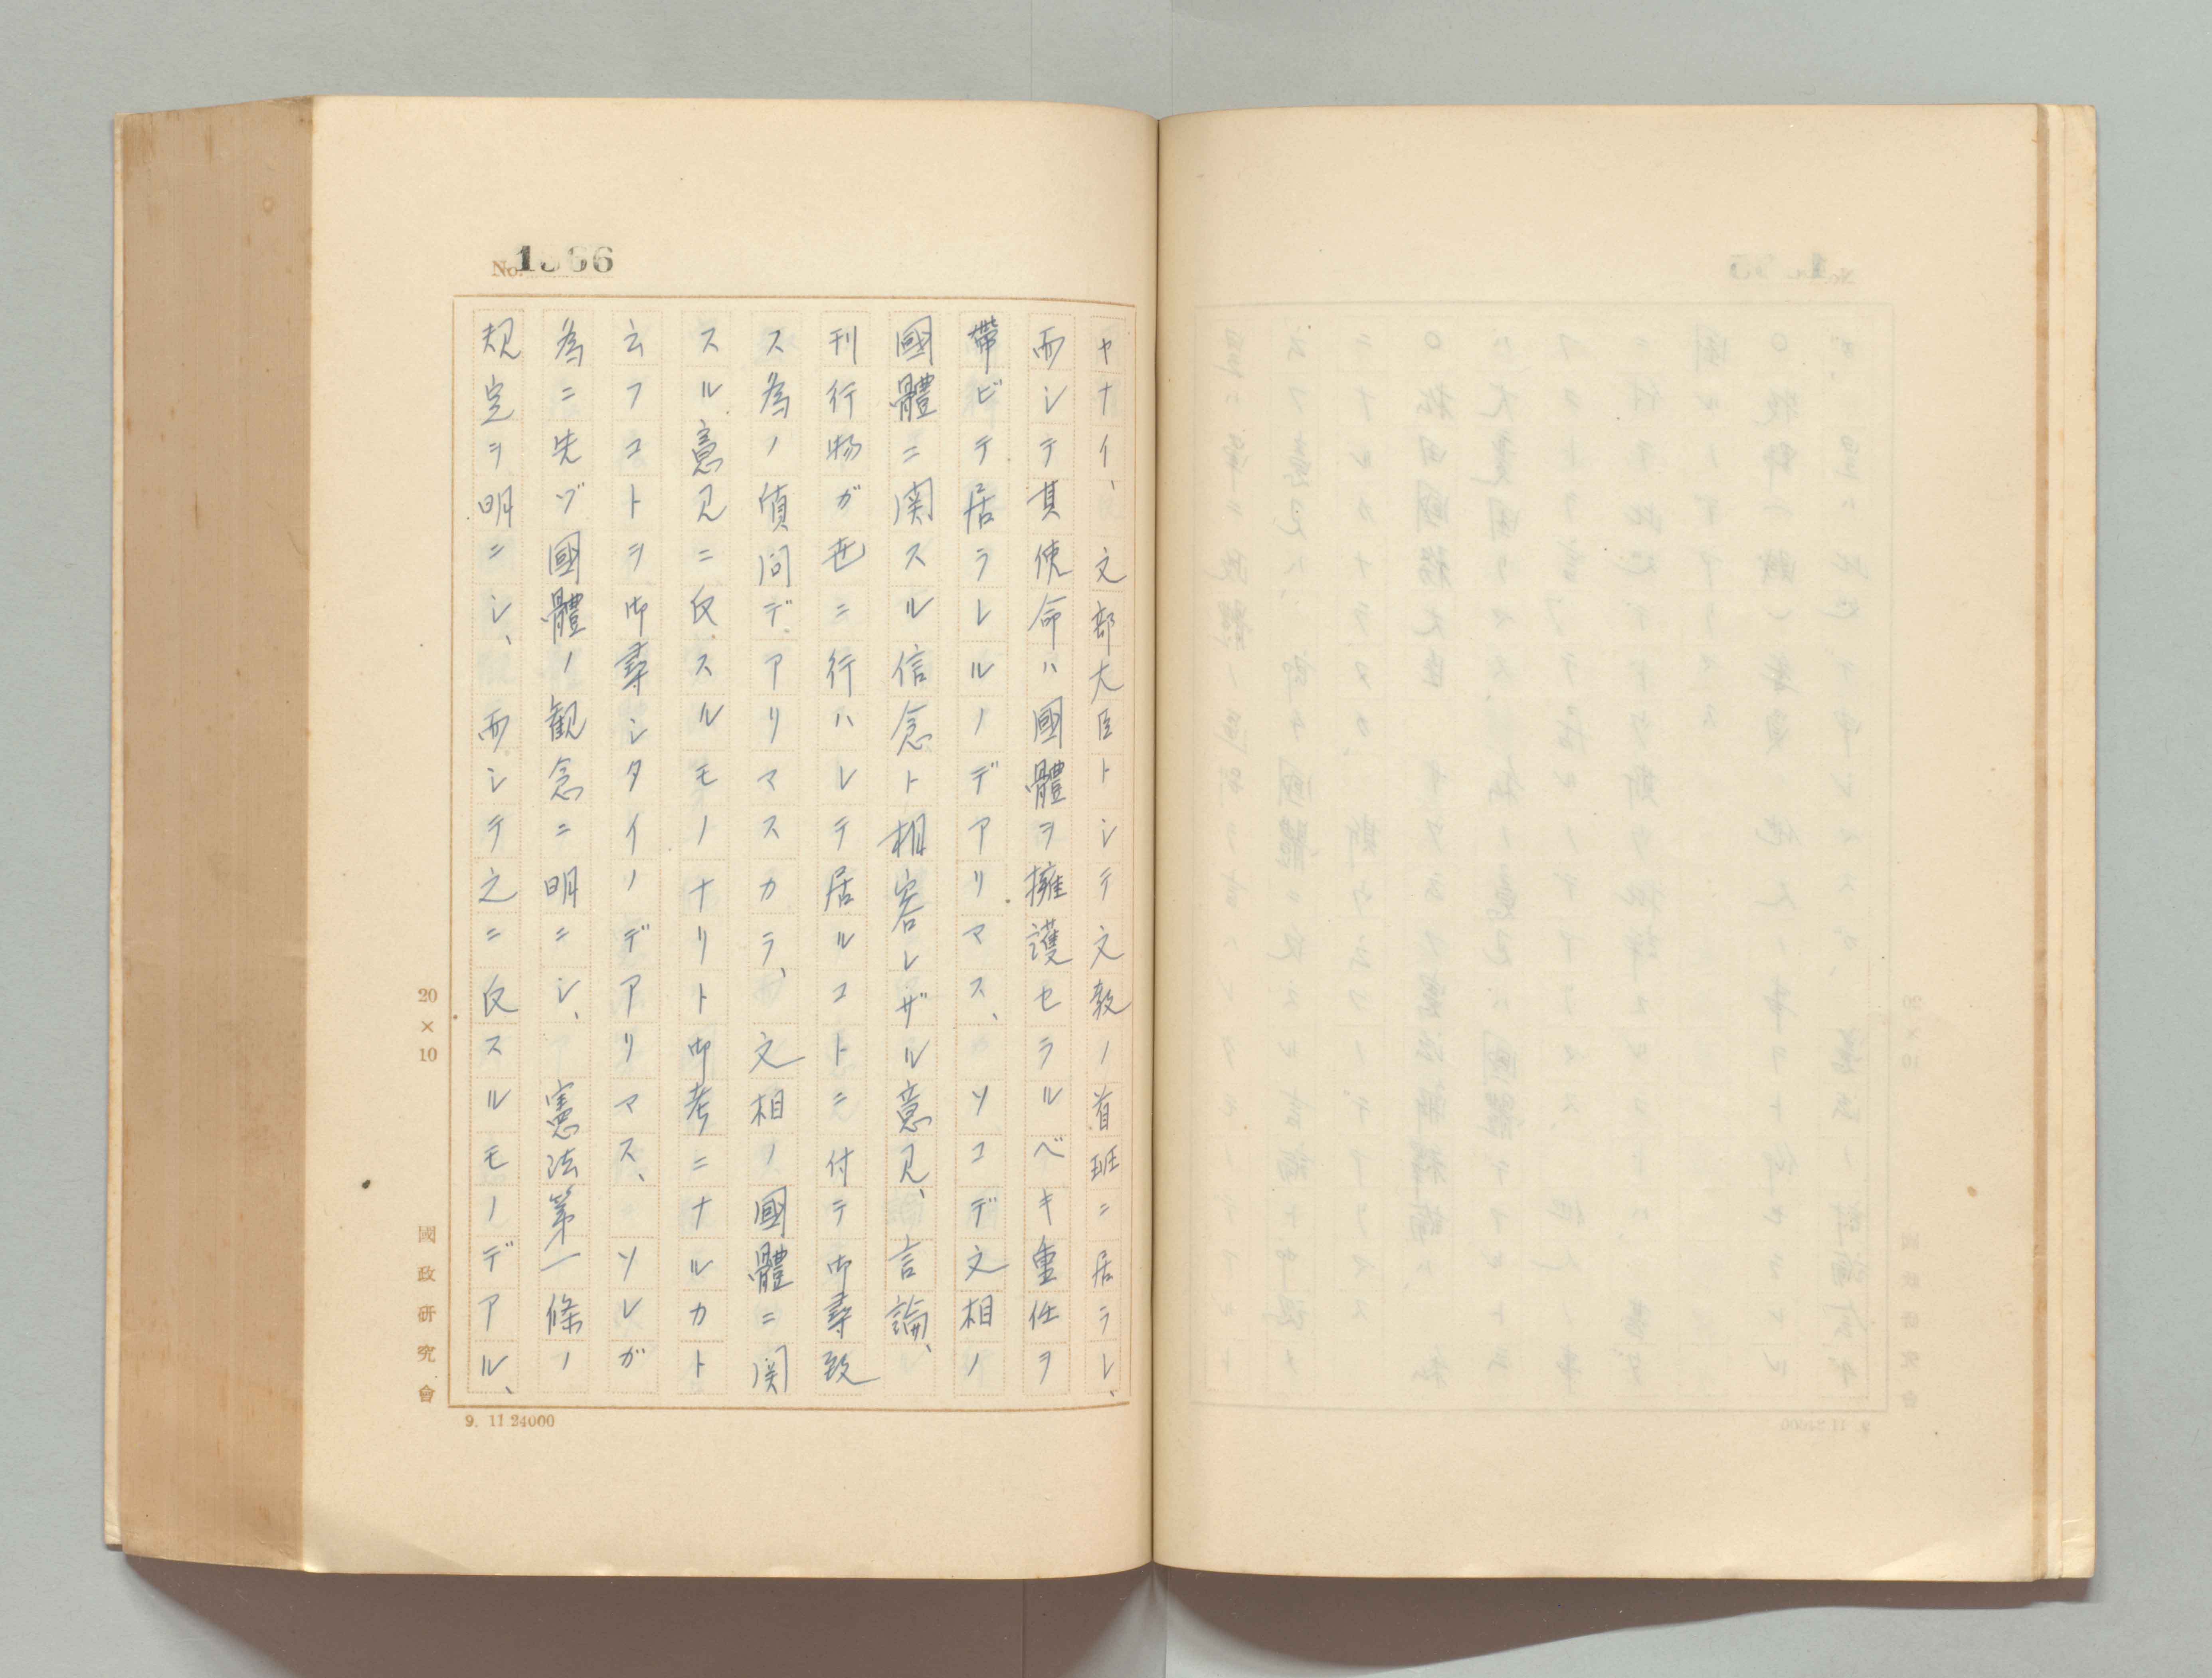 No. 1366
ヤナイ、文部大臣トシテ文教ノ首班ニ居ラレ、
而シテ其使命ハ國體ヲ擁護セラルベキ重任ヲ
帶ビテ居ラレルノデアリマス、ソコデ文相ノ
國體ニ関スル信念ト相容レザル意見、言論、
刊行物ガ世ニ行ハレテ居ルコトニ付テ御尋致
ス為ノ質問デアリマスカラ、文相ノ國體ニ関
スル意見ニ反スルモノナリト御考ニナルカト
云フコトヲ御尋シタイノデアリマス、ソレガ
為ニ先ヅ國體ノ観念ニ明ニシ、憲法第一條ノ
規定ヲ明ニシ、而シテ之ニ反スルモノデアル、
20×10
國政研究會
9. 11 24000